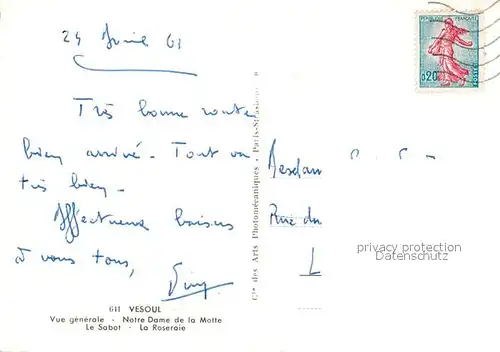 24 61
Très bonne route
bien arrivé - Tout va
très bien -
Affectueux baisers
à vous tous,
611 VESOUL
Vue générale - Notre Dame de la Motte
Le Sabot - La Roseraie
Cie des Arts Photomécaniques - Paris-Strasbourg
REPUBLIQUE FRANÇAISE
0,20
POSTES
Mesdam
Rue du
L
privacy protection
Datenschutz